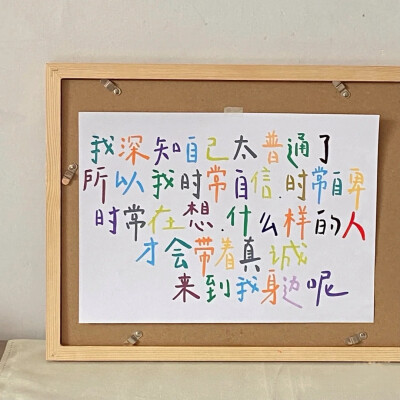 我深知自己太普通了
所以我时常自信.时常自卑
时常在想.什么样的人
才会带着真诚
来到我身边呢